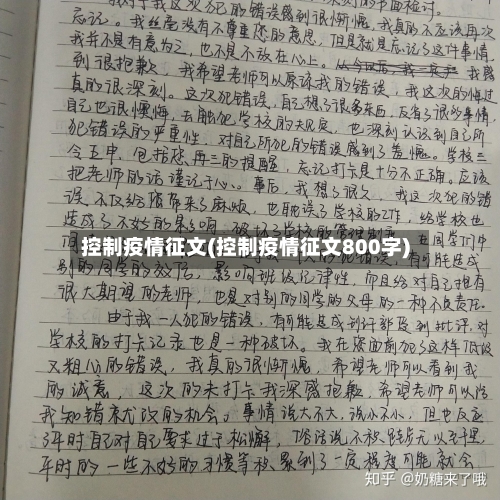 忘记。我丝毫没有不尊重您的意思,但是就是忘记了这件事情,
我并不是有意为之,也不是不放在心上。
到很抱歉,我希望老师可以原谅我的错误,我这次的悔过
真的很深刻。这次犯错误,自己想了很多东西,反省了很多事情,
自己也很懊悔,去触犯学校的
犯错误的严重性,对自己所犯的错误感到了羞愧。学校三
令五申,包括您再三的提醒,忘记打卡是十分不正确。应该
把老师的话谨记于心。事后,我想了很久,我这次犯的错
误,不仅给您带来了麻烦,也耽误了学校的工作,给学校也
造成了不好的影响
控制疫情征文(控制疫情征文800字)
别的同学的效仿,影响班级纪律性,而且给对自己抱有
很大期望的老师,也是对别的同学的父母的一种不负责任。
由于我一人犯的错误,有可能造成
学校的打卡记录也是一种破坏。我在您面前犯了这样低级
又粗心的错误,我真的很惭愧,希望老师可以看到我
的诚意,这次的未打卡我深感抱歉,希望老师可以给
我知错就改的机会。事情说大不大,说小不小,但也反应
了平时自己对自己要求过于松懈,俗话说不积跬步无以至千里,
平时的一些不好的习惯等积累到了一定程度可能就会
知乎 @奶糖来了哦